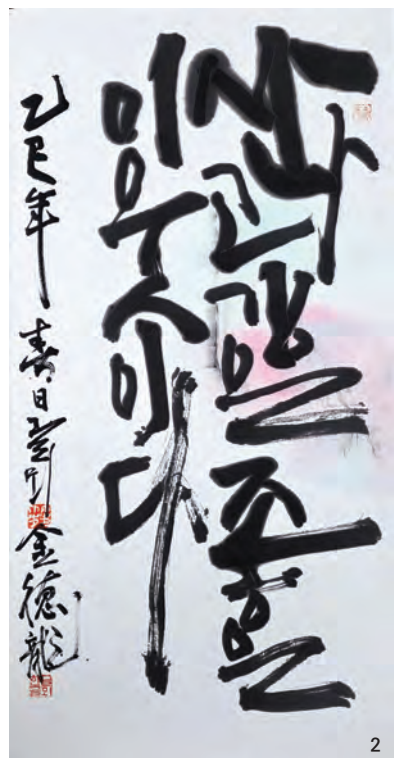 산과강은좋은
이웃이다
乙巳年 春日 金德龍
2